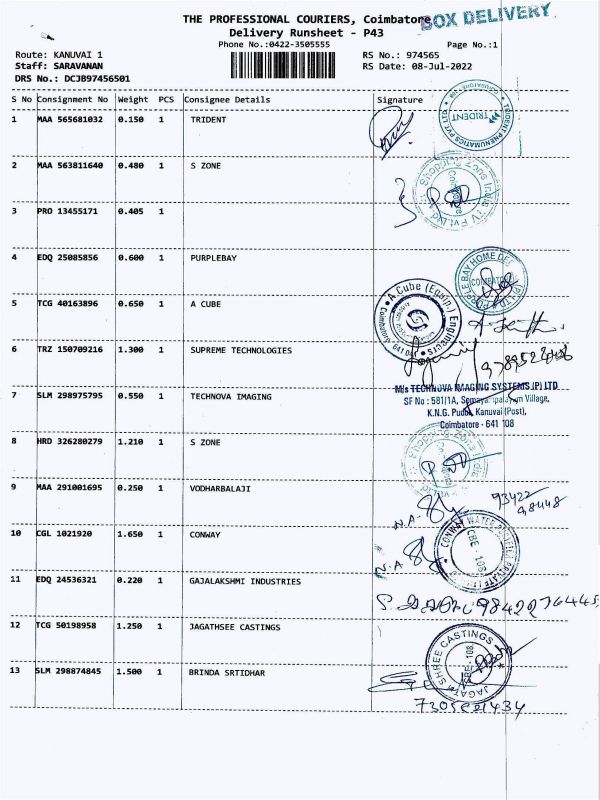 THE PROFESSIONAL COURIERS, Coimbatore
BOX DELIVERY
Delivery Runsheet - P43
Phone No.:0422-3505555
Page No.:1
Route: KANUVAI 1
RS No.: 974565
Staff: SARAVANAN
RS Date: 08-Jul-2022
DRS No.: DCJB97456501
S No Consignment No Weight PCS Consignee Details Signature
1 MAA 565681032 0.150 1 TRIDENT
TRIDENT PNEUMATICS PVT LTD.
TRIDENT
2 MAA 563811640 0.480 1 S ZONE
3 PRO 13455171 0.405 1
4 EDQ 25085856 0.600 1 PURPLEBAY
5 TCG 40163896 0.650 1 A CUBE
A Cube (Equip.) Engineers
6 TRZ 150709216 1.300 1 SUPREME TECHNOLOGIES
7 SLM 298975795 0.550 1 TECHNOVA IMAGING
M/s TECHNOVA IMAGING SYSTEMS (P) LTD
SF No : 581/1A, Somayampalayam Village,
K.N.G. Pudur, Kanuvai (Post),
Coimbatore - 641 108
8 HRD 326280279 1.210 1 S ZONE
9 MAA 291001695 0.250 1 VODHARBALAJI
93422
98448
N.A-
10 CGL 1021920 1.650 1 CONWAY
CBE 108
N.A
11 EDQ 24536321 0.220 1 GAJALAKSHMI INDUSTRIES
9842276445
12 TCG 50198958 1.250 1 JAGATHSEE CASTINGS
JAGATH SHREE CASTINGS
CBE-108
13 SLM 298874845 1.500 1 BRINDA SRTIDHAR